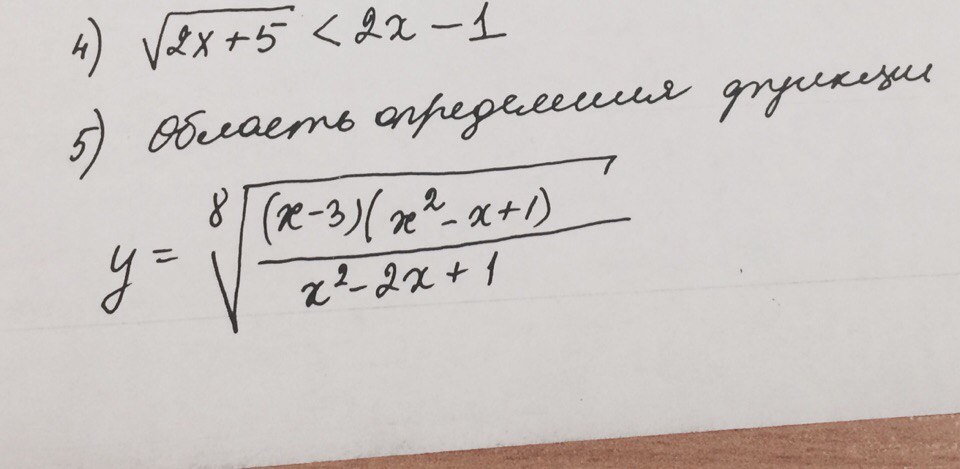 4) √(2x+5) < 2x - 1
5) Область определения функции
y = ⁸√((x-3)(x²-x+1) / (x²-2x+1))